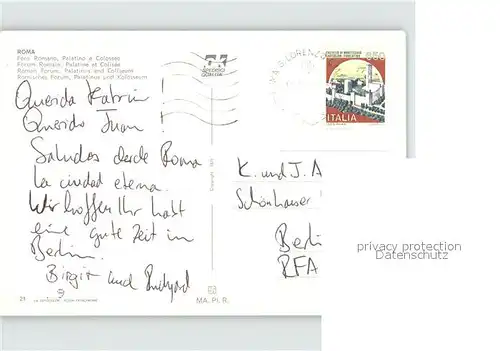 ROMA
Foro Romano, Palatino e Colosseo
Forum Romain, Palatine et Colisée
Roman Forum, Palatinus and Coliseum
Römisches Forum, Palatinus und Kolosseum
Querida Katrin!
Querido Juan!
Saludos desde Roma
la ciudad eterna.
Wir hoffen Ihr habt
eine gute Zeit in
Berlin.
Birgit und
S. LORENZO
850
ITALIA
K. und J. A
Schönhauser
Berli
RFA
privacy protection
Datenschutz
Copyright
MA. PI. R.